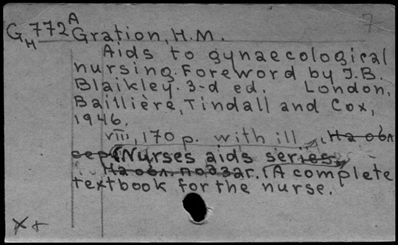 7
G H 772 A Gration, H.M.
Aids to gynaecological
nursing. Foreword by J.B.
Blaikley. 3-d ed. London,
Baillière, Tindall and Cox,
1946.
VIII, 170 p. with ill., На обл.
сер. (Nurses aids series,
На обл. подзаг. (A complete
textbook for the nurse.
X+